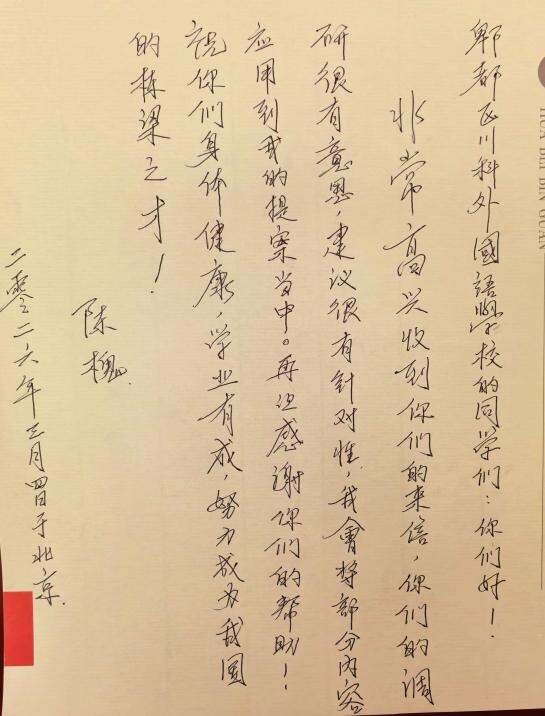 郫都区川科外國語學校的同学们：你们好！
非常高兴收到你们的来信，你们的调
研很有意思，建议很有针对性，我會将部分内容
应用到我的提案当中。再次感谢你们的帮助！
祝你们身体健康，学业有成，努力成为我国
的栋梁之才！
陈槐
二零二六年三月四日于北京.
HUA BEI BIN GUAN